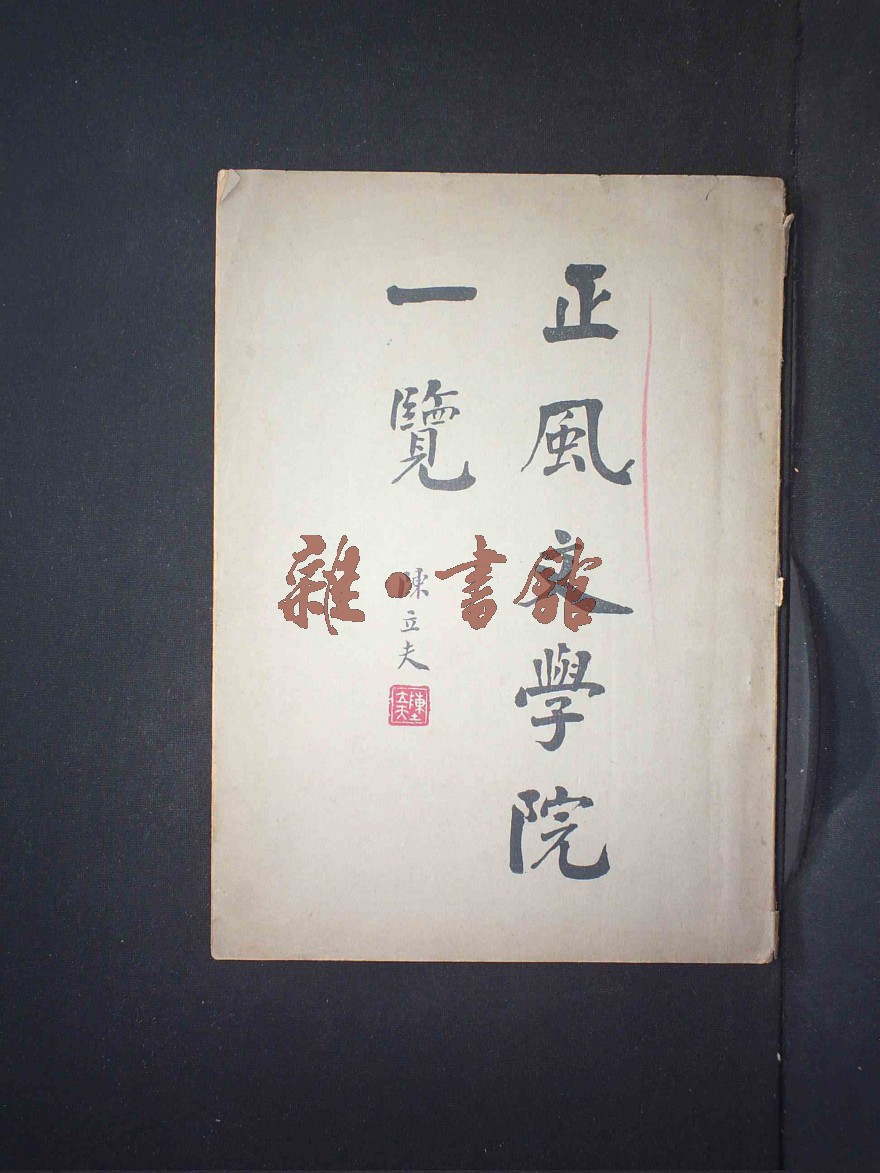 正風文學院
一覽
陳立夫
陳立夫
雜·書館